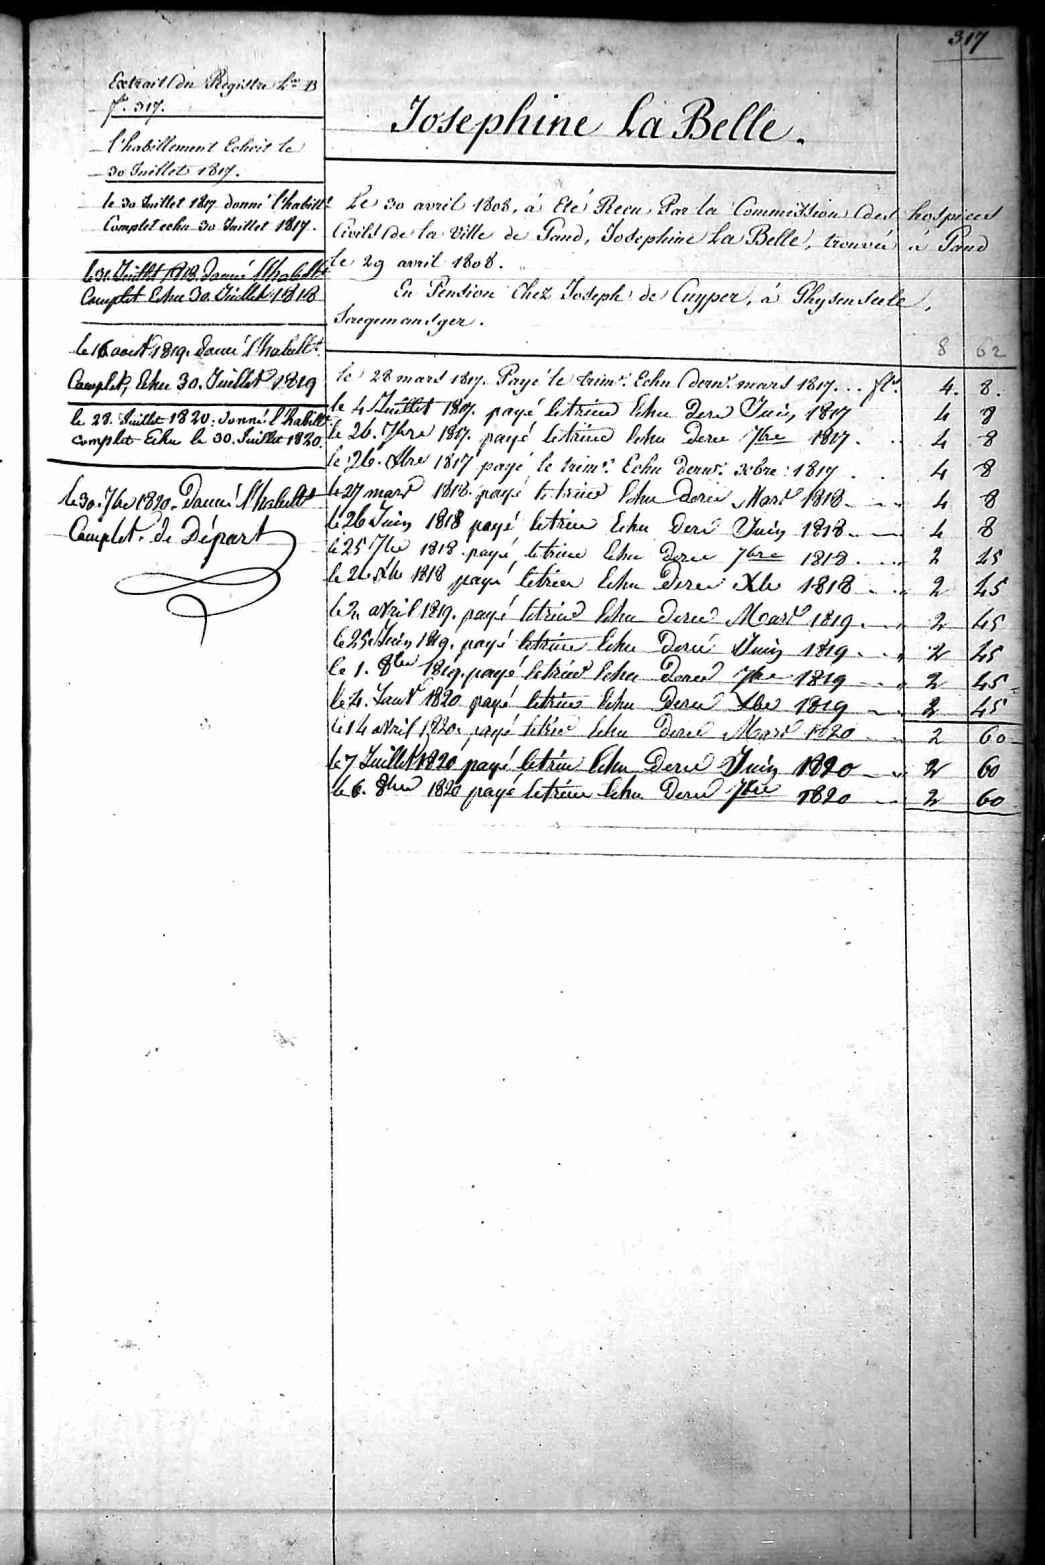 317
Extrait du Registre L.re B
f.o 317.
l'habillement Echoit le
30 Juillet 1817.
le 30 Juillet 1817 donné l'habill.t
Complet echu 30 Juillet 1817.
le 31. Juillet 1818. Donné l'habill.t
Complet Echu 30. Juillet 1818
le 16 aout 1819. Donné l'habill.t
Complet, Echu 30. Juillet 1819
le 28. Juillet 1820. donné l'habill.t
complet Echu le 30. Juillet 1820.
le 30. 7bre 1820. Donné l'habill.t
Complet. de Départ
Josephine La Belle.
Le 30 avril 1808, à Eté Recu Par la Commission des hospices
Civils de la Ville de Gand, Josephine La Belle, trouvée a Gand
le 29 avril 1808.
En Pension Chez Joseph de Cuyper, á Ghysenseele,
8 62
le 28 mars 1817. Payé le trim.e Echu dern.r mars 1817... fl.s 4. 8.
le 4 Juillet 1817. payé le trim Echu Dern Juin 1817 4 8
le 26. 7bre 1817. payé le trim Echu Dern 7bre 1817. 4 8
le 26. Xbre 1817 payé le trim.e Echu Dern.r Xbre 1817 4 8
le 27 mars 1818. payé le trim Echu Dern Mars 1818 4 8
le 26 Juin 1818 payé le trim Echu Dern Juin 1818 4 8
le 25 7bre 1818. payé le trim Echu Dern 7bre 1818 2 45
le 24 Xbe 1818 payé le trim Echu Dern Xbe 1818 2 45
le 2 avril 1819. payé le trim Echu Dern Mars 1819 2 45
le 25 Juin 1819. payé le trim Echu Dern Juin 1819 2 45
le 1. 8bre 1819. payé le trim Echu Dern 7bre 1819 2 45
le 4. Janv.r 1820 payé le trim Echu Dern Xbe 1819 2 45
le 14 avril 1820. payé le trim Echu Dern Mars 1820 2 60
le 7 Juillet 1820 payé le trim Echu Dern Juin 1820 2 60
le 6. 8bre 1820 payé le trim Echu Dern 7bre 1820 2 60